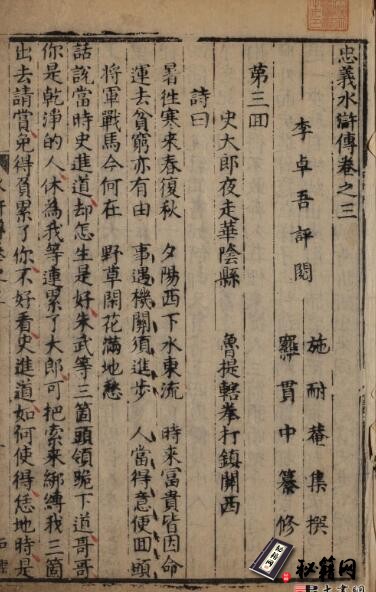 忠義水滸傳卷之三
李卓吾評閱
施耐菴集撰
羅貫中纂修
第三回
史大郎夜走華陰縣　魯提轄拳打鎮關西
詩曰
暑徃寒來春復秋　夕陽西下水東流　時來富貴皆因命
運去貧窮亦有由　事遇機關須進步　人當得意便回頭
將軍戰馬今何在　野草閑花滿地愁
話說當時史進道却怎生是好朱武等三箇頭領跪下道哥哥
你是乾淨的人休為我等連累了大郎可把索來綁縛我三箇
出去請賞免得負累了你不好看史進道如何使得恁地時是
秘籍网